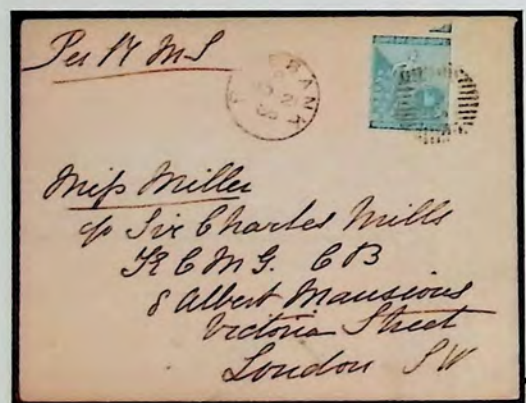 Per R M S
Miss Miller
c/o Sir Charles Mills
K C M G. C B
8 Albert Mansions
Victoria Street
London S W